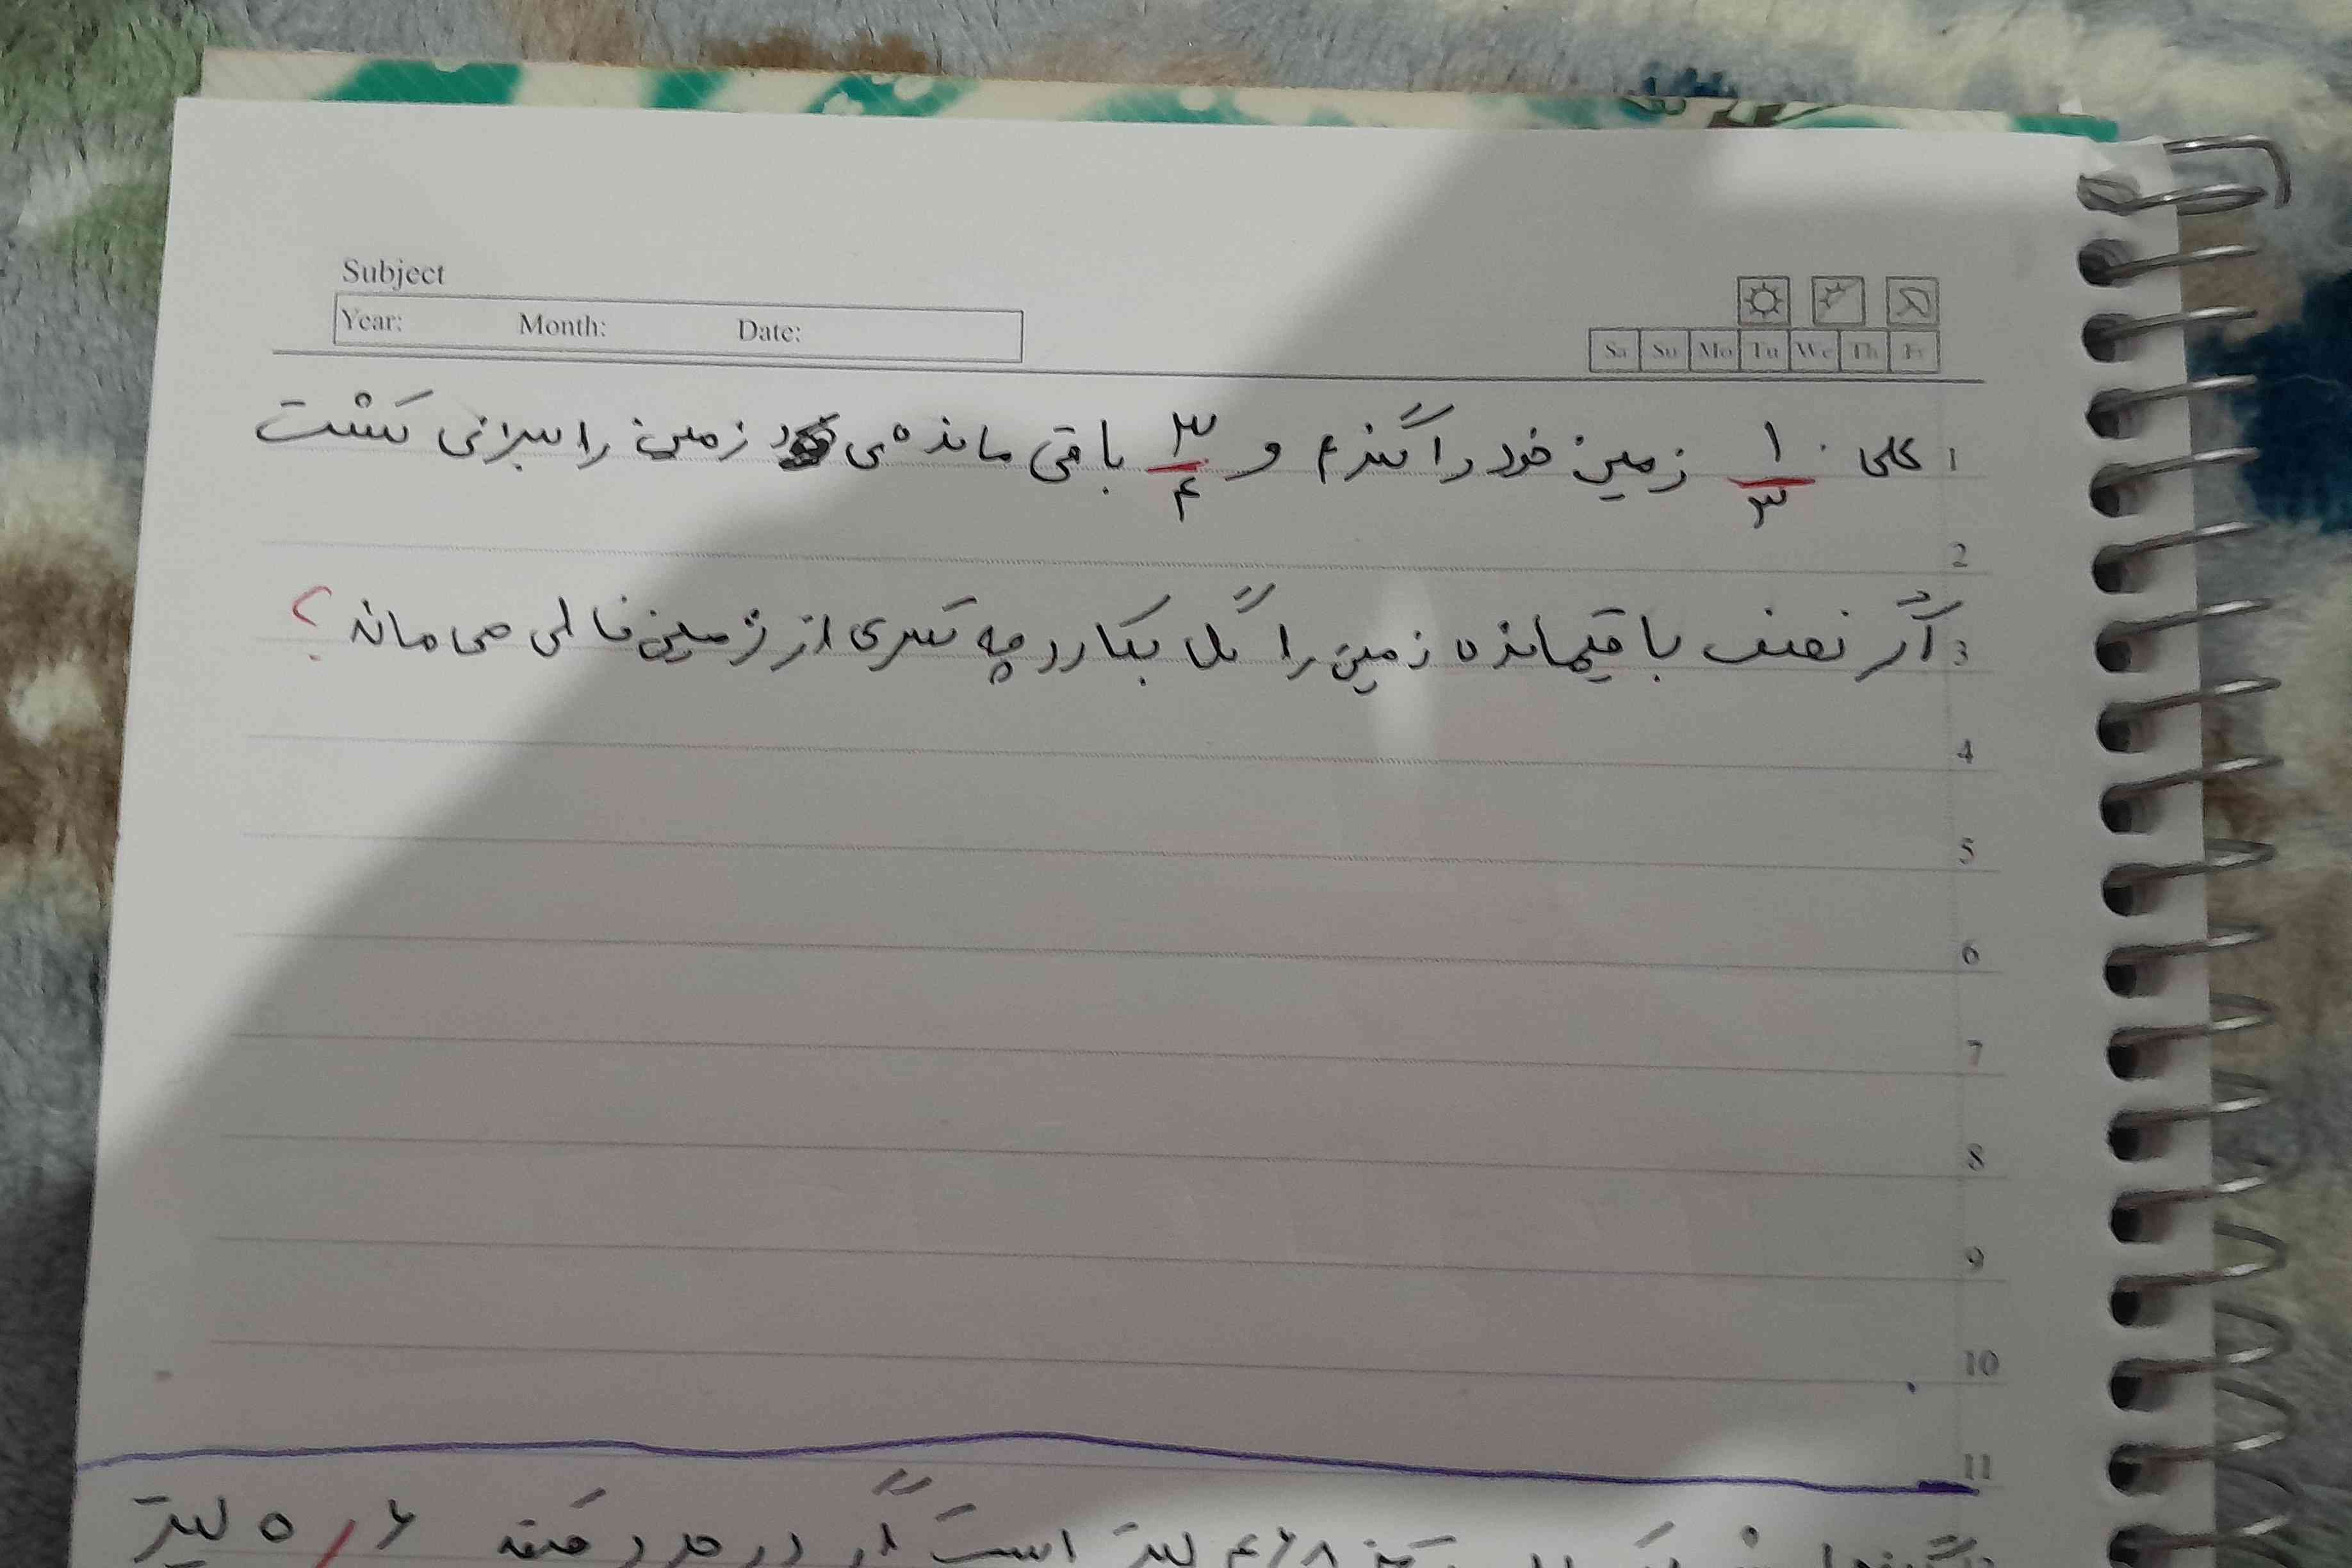 Subject
Year: Month: Date:
Sa Su Mo Tu We Th Fr
1 علی ۱/۳ زمین خود را گندم و ۳/۴ باقی مانده ی زمین را سبزی کشت
2
3 اگر نصف باقیمانده زمین را گل بکارد چه کسری از زمین خالی می ماند؟
4
5
6
7
8
9
10
11
لیتر است اگر در هر دقیقه ۶/۵ لیتر